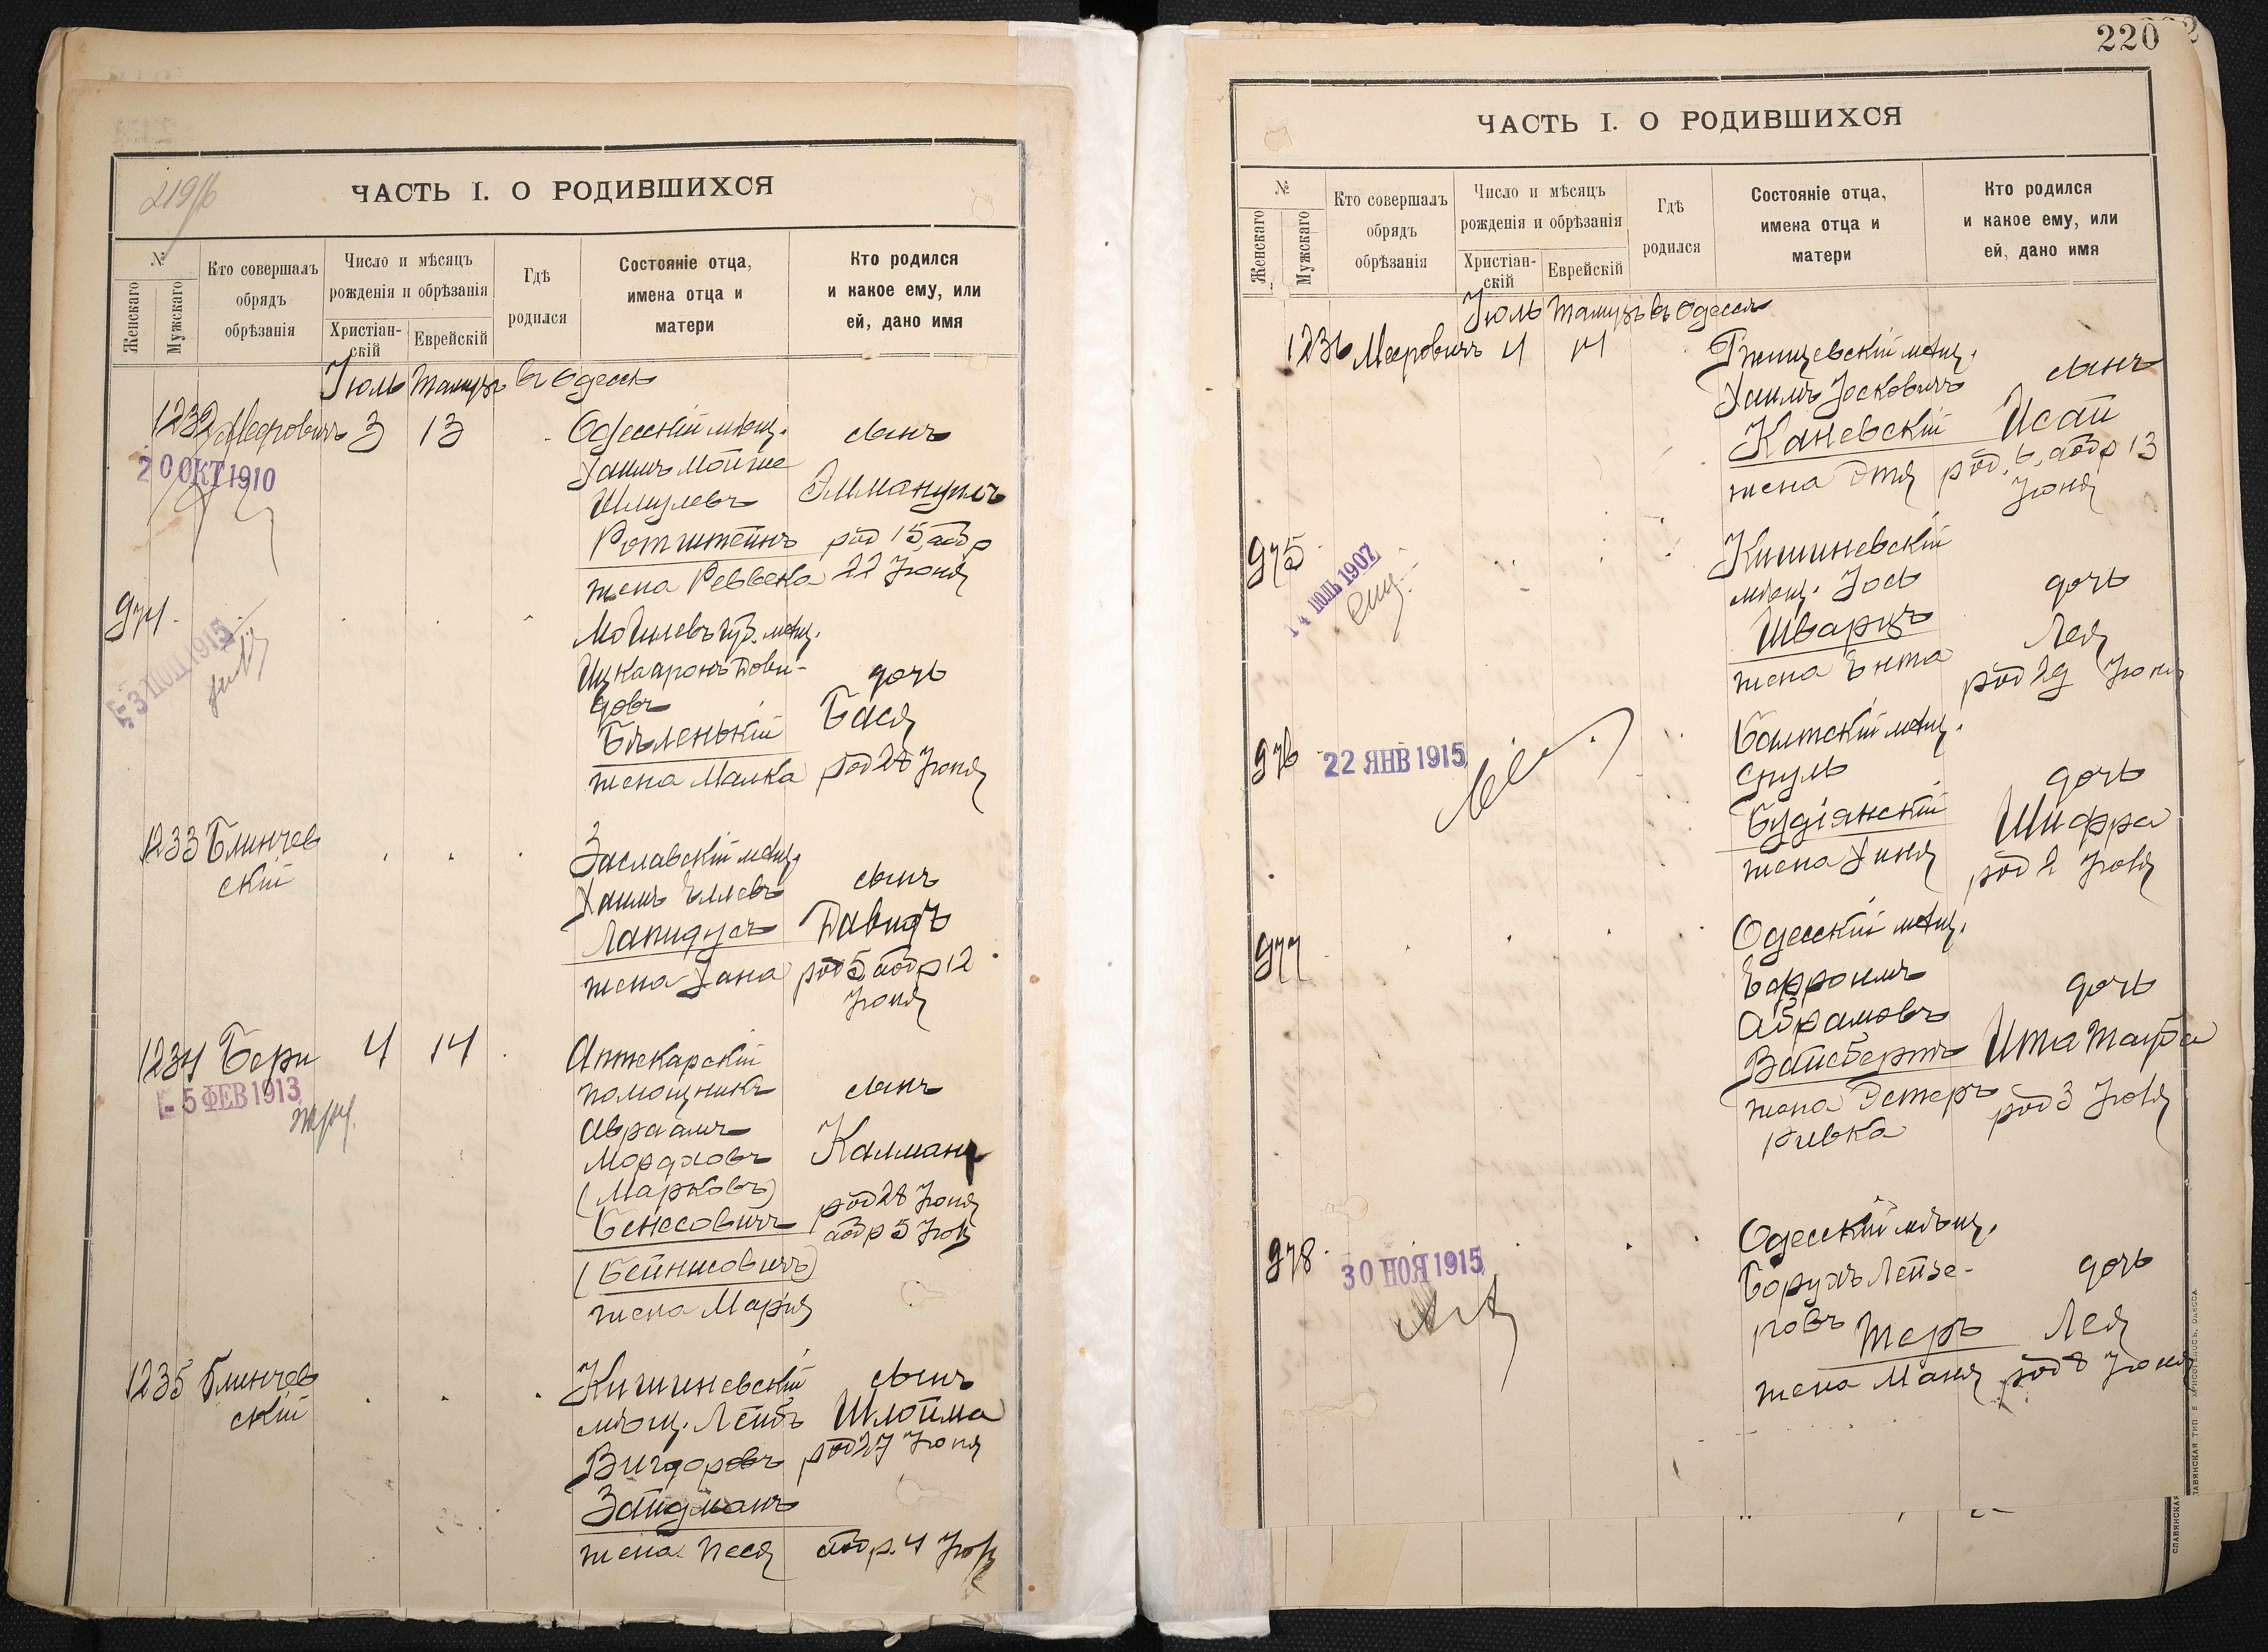 219/б
ЧАСТЬ I. О РОДИВШИХСЯ
№
Женскаго
Мужскаго
Кто совершалъ
обрядъ
обрѣзанія
Число и мѣсяцъ
рожденія и обрѣзанія
Христіан-
скій
Еврейскій
Гдѣ
родился
Состояніе отца,
имена отца и
матери
Кто родился
и какое ему, или
ей, дано имя
Іюль Тамузъ въ Одессѣ
1232 Мееровичъ 3 13
20 ОКТ 1910
Одесскій мѣщ.
Хаимъ Мойше
Шмулевъ
Ротштейнъ
жена Реввека
сынъ
Эммануилъ
род 15, обр
22 Іюня
974.
3 ПОЛ 1915
Могилевъ губ. мѣщ.
Ицка Аронъ Дови-
довъ
Бѣленькій
жена Малка
дочь
Бася
род 28 Іюня
1233 Блинчев
скій
Заславскій мѣщ.
Хаимъ Еллевъ
Лапидусъ
жена Хана
сынъ
Давидъ
род 5, обр 12
Іюня
1234 Бери 4 14
5 ФЕВ 1913
Аптекарскій
помощникъ
Авраамъ
Мордховъ
(Марковъ)
Бенесовичъ
(Бейнисовичъ)
жена Марія
сынъ
Калманъ
род 28 Іюня
обр 5 Іюл
1235 Блинчев
скій
Кишиневскій
мѣщ. Лейбъ
Вигдоровъ
Зайдманъ
жена Песя
сынъ
Шлойма
род 27 Іюня
обр. 4 Іюл
220
ЧАСТЬ I. О РОДИВШИХСЯ
№
Женскаго
Мужскаго
Кто совершалъ
обрядъ
обрѣзанія
Число и мѣсяцъ
рожденія и обрѣзанія
Христіан-
скій
Еврейскій
Гдѣ
родился
Состояніе отца,
имена отца и
матери
Кто родился
и какое ему, или
ей, дано имя
Іюль Тамузъ въ Одессѣ
1236 Мееровичъ 4 14
Ржищевскій мѣщ.
Хаимъ Іосковичъ
Каневскій
жена Этя
сынъ
Исай
род. 6, обр 13
Іюня
975
14 ІЮЛЬ 1907
Кишиневскій
мѣщ. Іось
Шварцъ
жена Ента
дочь
Лея
род 29 Іюня
976
22 ЯНВ 1915
Балтскій мѣщ.
Сруль
Будіанскій
жена Хиня
дочь
Шифра
род 2 Іюля
977
Одесскій мѣщ.
Ефроимъ
Абрамовъ
Вайсбергъ
жена Эстеръ
Ривка
дочь
Ита Тауба
род 3 Іюля
978
30 НОЯ 1915
Одесскій мѣщ.
Борухъ Лейзе-
ровъ
Теръ
жена Маня
дочь
Лея
род 8 Іюня